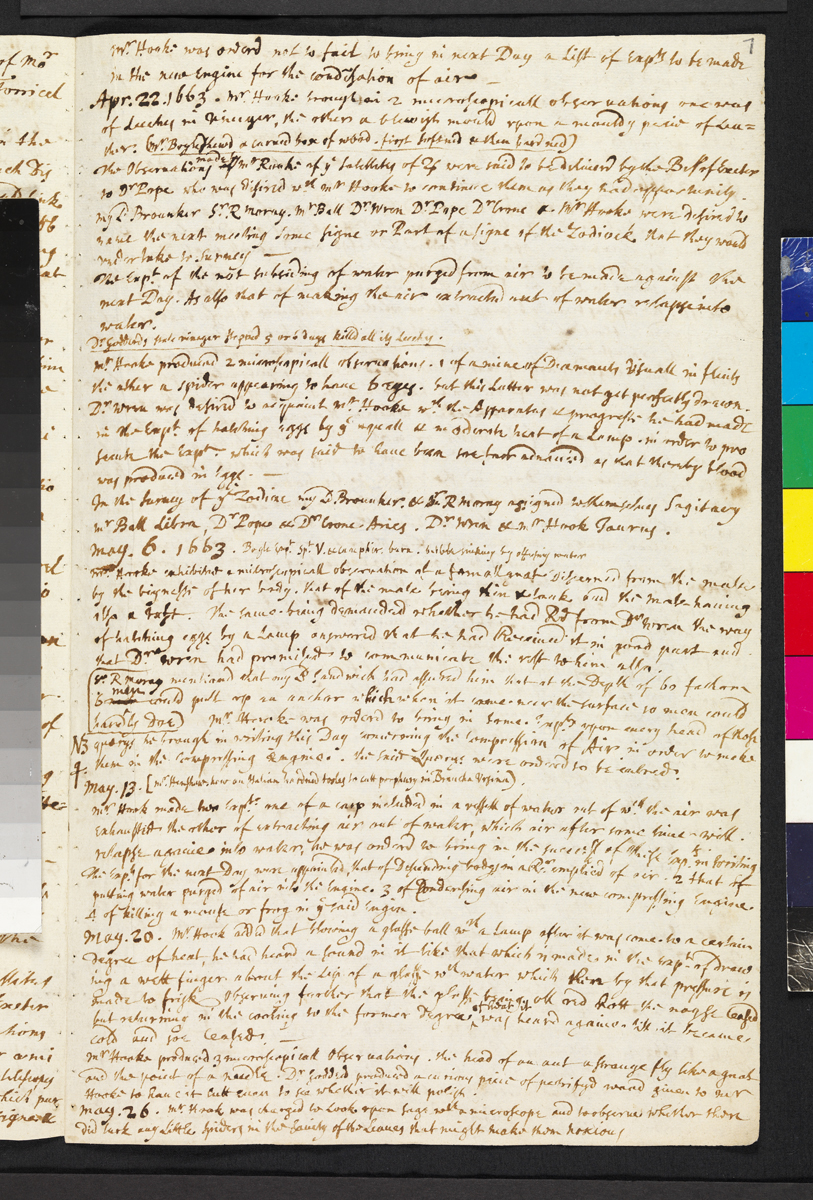 7
Mr. Hooke was orderd not to fail to bring in next Day a List of Expts. to be made
in the new Engine for the condensation of air —
Apr. 22. 1663. Mr. Hooke brought in 2 microscopicall observations one was
of Leeches in vineger, the other a blewish mould upon a mouldy peice of Lea=
ther. (Mr. Boyle shewd a carued box of wood. first softned & then hardned)
The Observations made by Mr Rooke of ye Satellites of ♃ were said to be deliuerd by the Bp of Exeter
to Dr Pope who was desired wth mr Hooke to continue them as they had oppertunity.
my Ld. Brounker Sr. R Moray. Mr Ball Dr. Wren Dr. Pope Dr Crone & Mr Hooke were desired to
name the next meeting some signe or Part of a signe of the Zodiack that they would
undertake to survey —
The Expt. of the not subsiding of water purged from air to be made against the
next Day. As also that of making the air extracted out of water relapse into
water.
Dr Goddards vineger stopd 5 or 6 days killd all its Leeches.
Mr. Hooke produced 2 microscopicall observations. 1 of a mine of Diamants usuall in flints
the other a spider appearing to haue 6 eyes. but this Latter was not yet perfectly drawn.
Dr. Wren was desired to acquaint Mr. Hooke wth the Apparatus & progresse he had made
in the Expt. of hatching eggs by ye equall & moderate heat of a Lamp. in order to pro
secute the Expt. which was said to haue been soe far aduanced as that thereby blood
was produced in eggs. —
In the Survey of ye Zodiac my Ld. Brounker. & Sr. R Moray assigned to themselues Sagitary
mr Ball Libra, Dr Pope & Dr Crone Aries. Dr. Wren & mr Hook Taurus.
may. 6. 1663. Boyle Expt. Spt. V. & camphir burn. bubble sinking by
Mr. Hooke exhibited a microscopicall observation of a femall gnat Discerned from the male
by the bignesse of her body. that of the male being thin & lank and the male hauing
also a tuft. The same being demanded whether he had Recd from Dr Wren the way
of hatching eggs by a Lamp answered that he had Receiued it in good part and
that Dr. Wren had promised to communicate the rest to him also.
Sr. R Moray mentiond that my Ld Sandwich had assured him that at the Depth of 60 fathom
6 men could pull up an anchor which when it came neer the surface 20 men could
hardly Doe) Mr. Hooke was orderd to bring in some Expts upon euery head of those
NB quærys he brough in writing this Day concerning the compression of Air in order to make
them in the compressing Engine. The said Quærys were orderd to be entred.
May. 13. [Mr. Henshaw how an Italian he used tooles to cutt porphiry in
Mr. Hook made two Expts. one of a carp included in a vessell of water out of wch. the air was
exhausted the other of extracting air out of water, which air after some time will.
relapse againe into water; he was orderd to bring in the successe of these Expts. in writing
The Expts for the next Day were appointed, that of Descending bodys in a Rr. emptied of air. 2 that of
putting water purged of air into the Engine. 3 of Condensing air in the new compressing Engine.
4 of killing a mouse or frog in ye said Engin.
May. 20. Mr. Hook added that blowing a glasse ball wth a Lamp after it was come to a certain
Degree of heat, he had heard a sound in it like that which is made in the Expt. of draw
ing a wett finger about the Lip of a glasse wth water which then by that pressure is
made to frisk Observing further that the glasse being all red hott the noyse ceased
but returning in the cooling to the former degree of heat it was heard againe till it became
cold and soe ceased. —
Mr. Hooke produced 3 microscopicall Observations. the head of an ant a strange fly like a gnat
and the point of a needle. Dr Goddard produced a curious piece of petrifyd wood given to mr
Hooke to haue it cutt euen to see whether it will polish.
May. 26. Mr. Hook was charged to Look upon sage wth a microscope and to obserue whether there
did lurk any Little spiders in the Cauity of the Leaues that might make them noxious